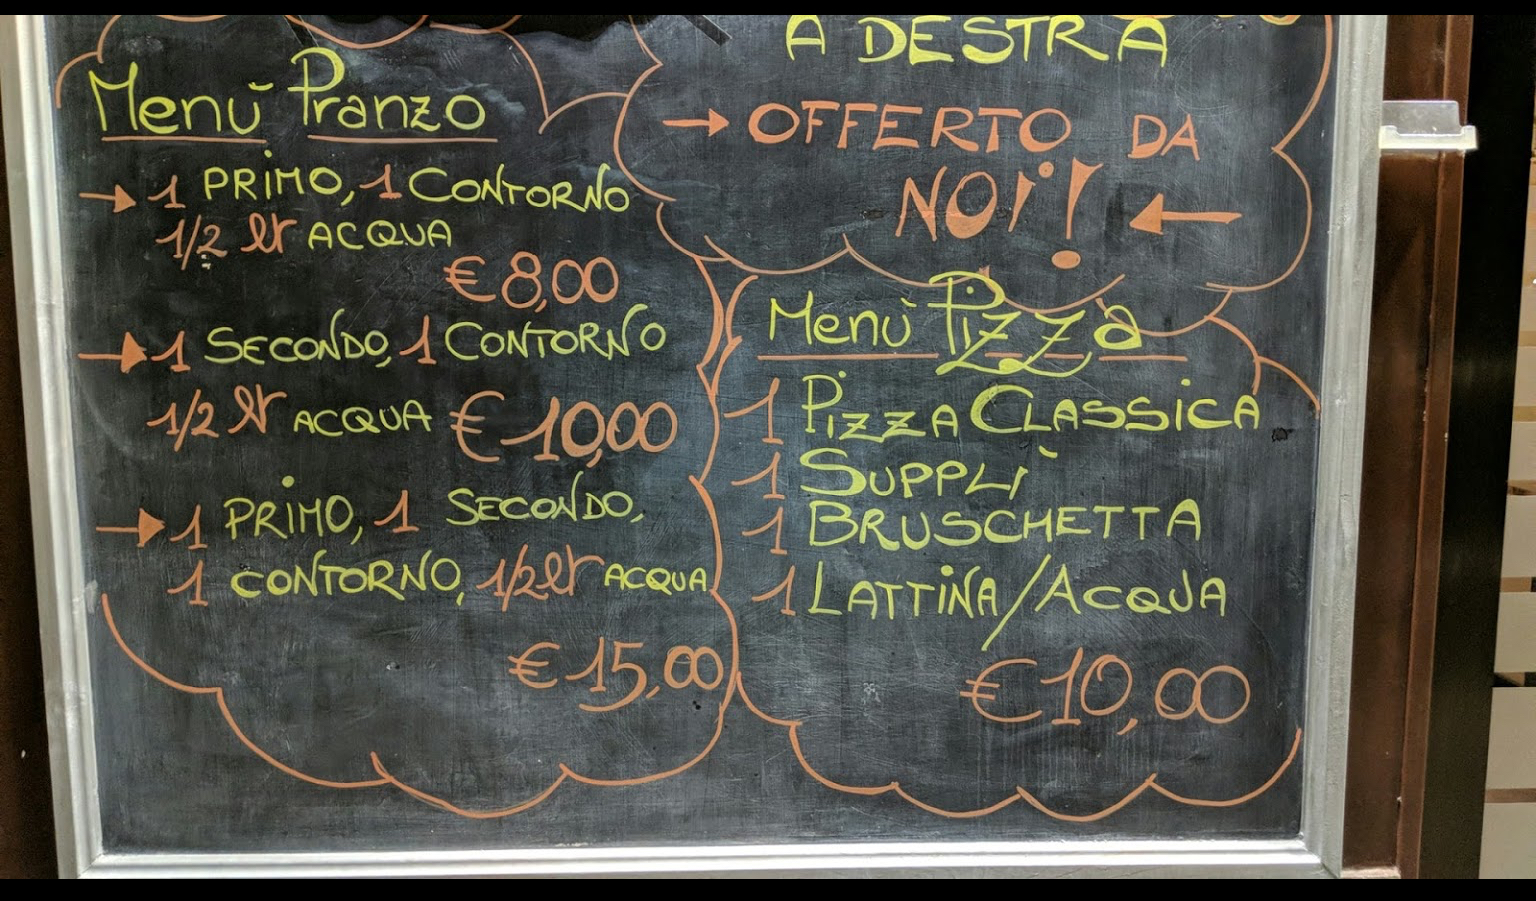 Menù Pranzo
→ 1 PRIMO, 1 CONTORNO
1/2 lt ACQUA
€ 8,00
→ 1 SECONDO, 1 CONTORNO
1/2 lt ACQUA € 10,00
→ 1 PRIMO, 1 SECONDO,
1 CONTORNO, 1/2 lt ACQUA
€ 15,00
A DESTRA
→ OFFERTO DA
NOI! ←
Menù Pizza
1 PIZZA CLASSICA
1 SUPPLÌ
1 BRUSCHETTA
1 LATTINA/ACQUA
€ 10,00